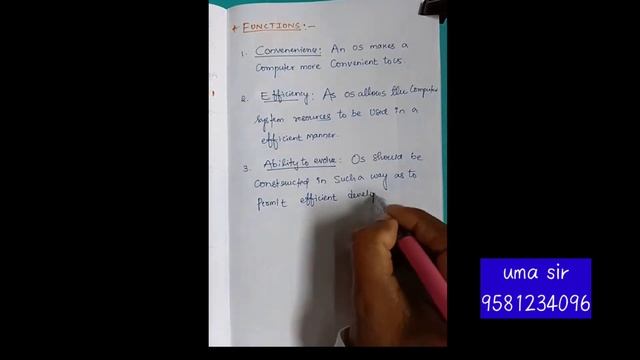 * FUNCTIONS:-
1. Convenenience: An OS makes a
Computer more Convenient to us.
2. Efficiency: As OS allows the Computer
System resources to be used in a
efficient manner.
3. Ability to evolve: OS should be
Constructed in Such a way as to
Permit efficient develop
uma sir
9581234096